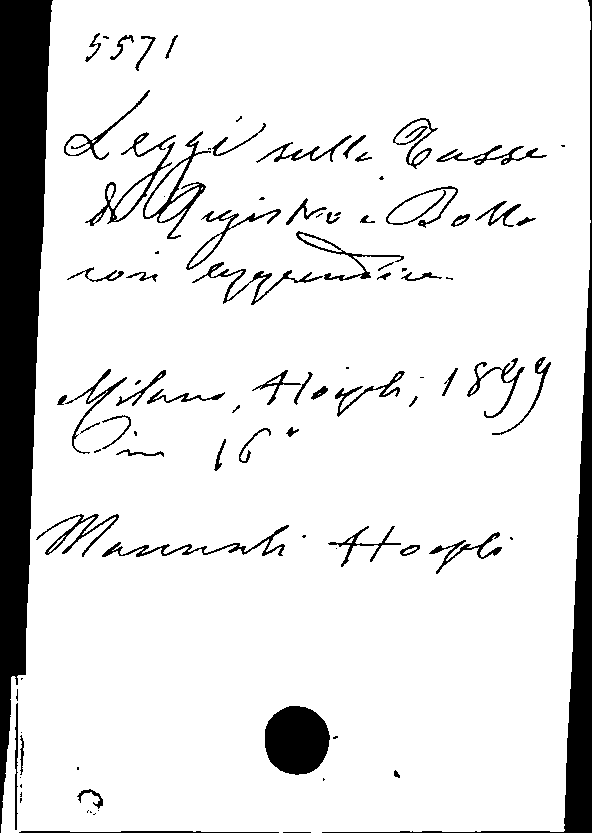 5571
Leggi sulle Tasse
di Registro e Bollo
con appendice
Milano, Hoepli, 1899
in 16°
Manuali Hoepli